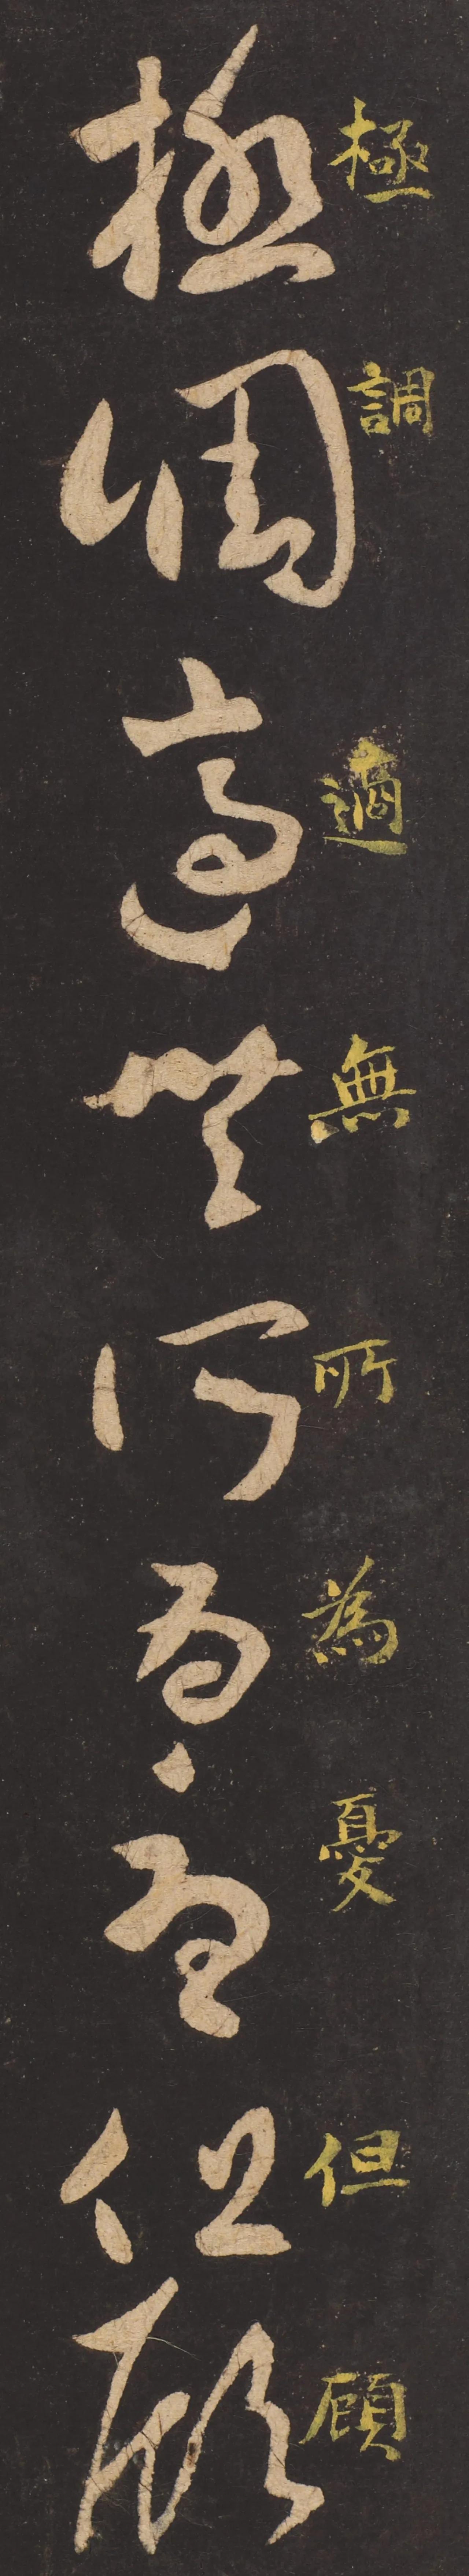 極調適無所為憂但顧
極調適無所為憂但顧